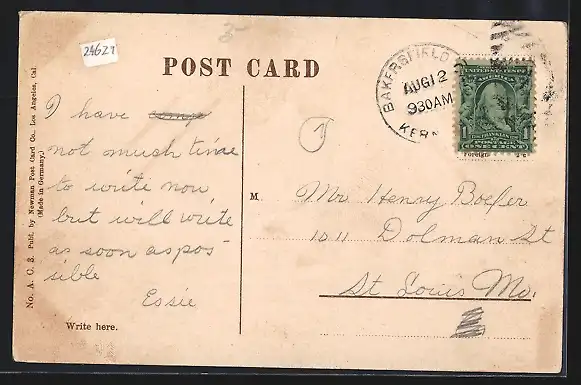 24621
POST CARD
BAKERSFIELD
AUG 12
930AM
KERN
UNITED STATES OF
AMERICA
FRANKLIN
1 1
POSTAGE
ONE CENT
Foreign
No. A. C. 3. Publ. by Newman Post Card Co., Los Angeles, Cal.
(Made in Germany.)
I have
not much time
to write now
but will write
as soon as pos-
sible
Essie
Write here.
1
M. Mr Henry Boefer
1011 Dolman St
St Louis Mo.